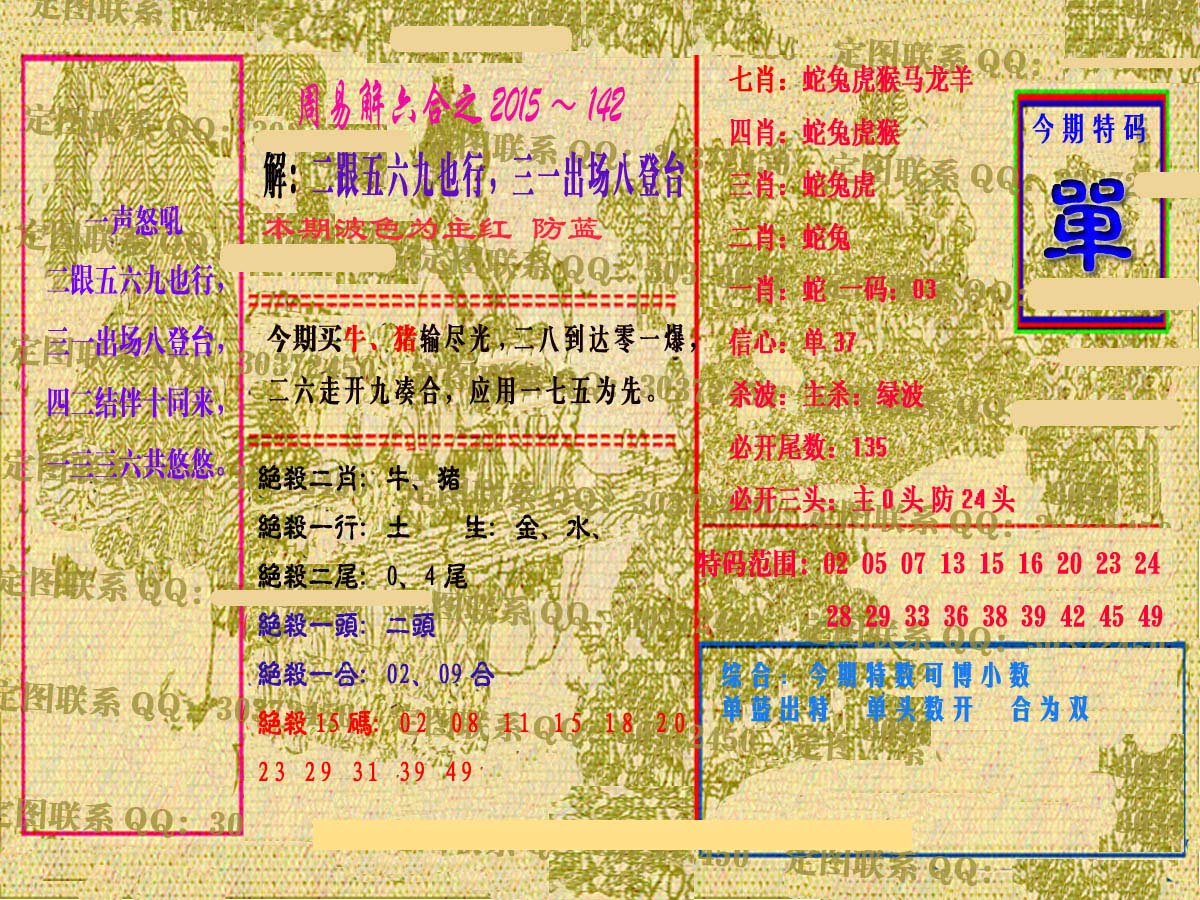 周易解六合之 2015～142
一声怒吼
二跟五六九也行，
三一出场八登台，
四二结伴十同来，
一三三六共悠悠。
解：二跟五六九也行，三一出场八登台
本期波色为主红 防蓝
今期买牛、猪输尽光，二八到达零一爆，
二六走开九凑合，应用一七五为先。
絕殺二肖：牛、猪
絕殺一行：土 生：金、水、
絕殺二尾：0、4 尾
絕殺一頭：二頭
絕殺一合：02、09 合
絕殺 15 碼：02 08 11 15 18 20
23 29 31 39 49
七肖：蛇兔虎猴马龙羊
四肖：蛇兔虎猴
三肖：蛇兔虎
二肖：蛇兔
一肖：蛇 一码：03
信心：单 37
杀波：主杀：绿波
必开尾数：135
必开三头：主 0 头 防 24 头
今期特码
單
特码范围：02 05 07 13 15 16 20 23 24
28 29 33 36 38 39 42 45 49
综合：今期特数可博小数
单蓝出特．单头数开 合为双
定图联系 QQ：